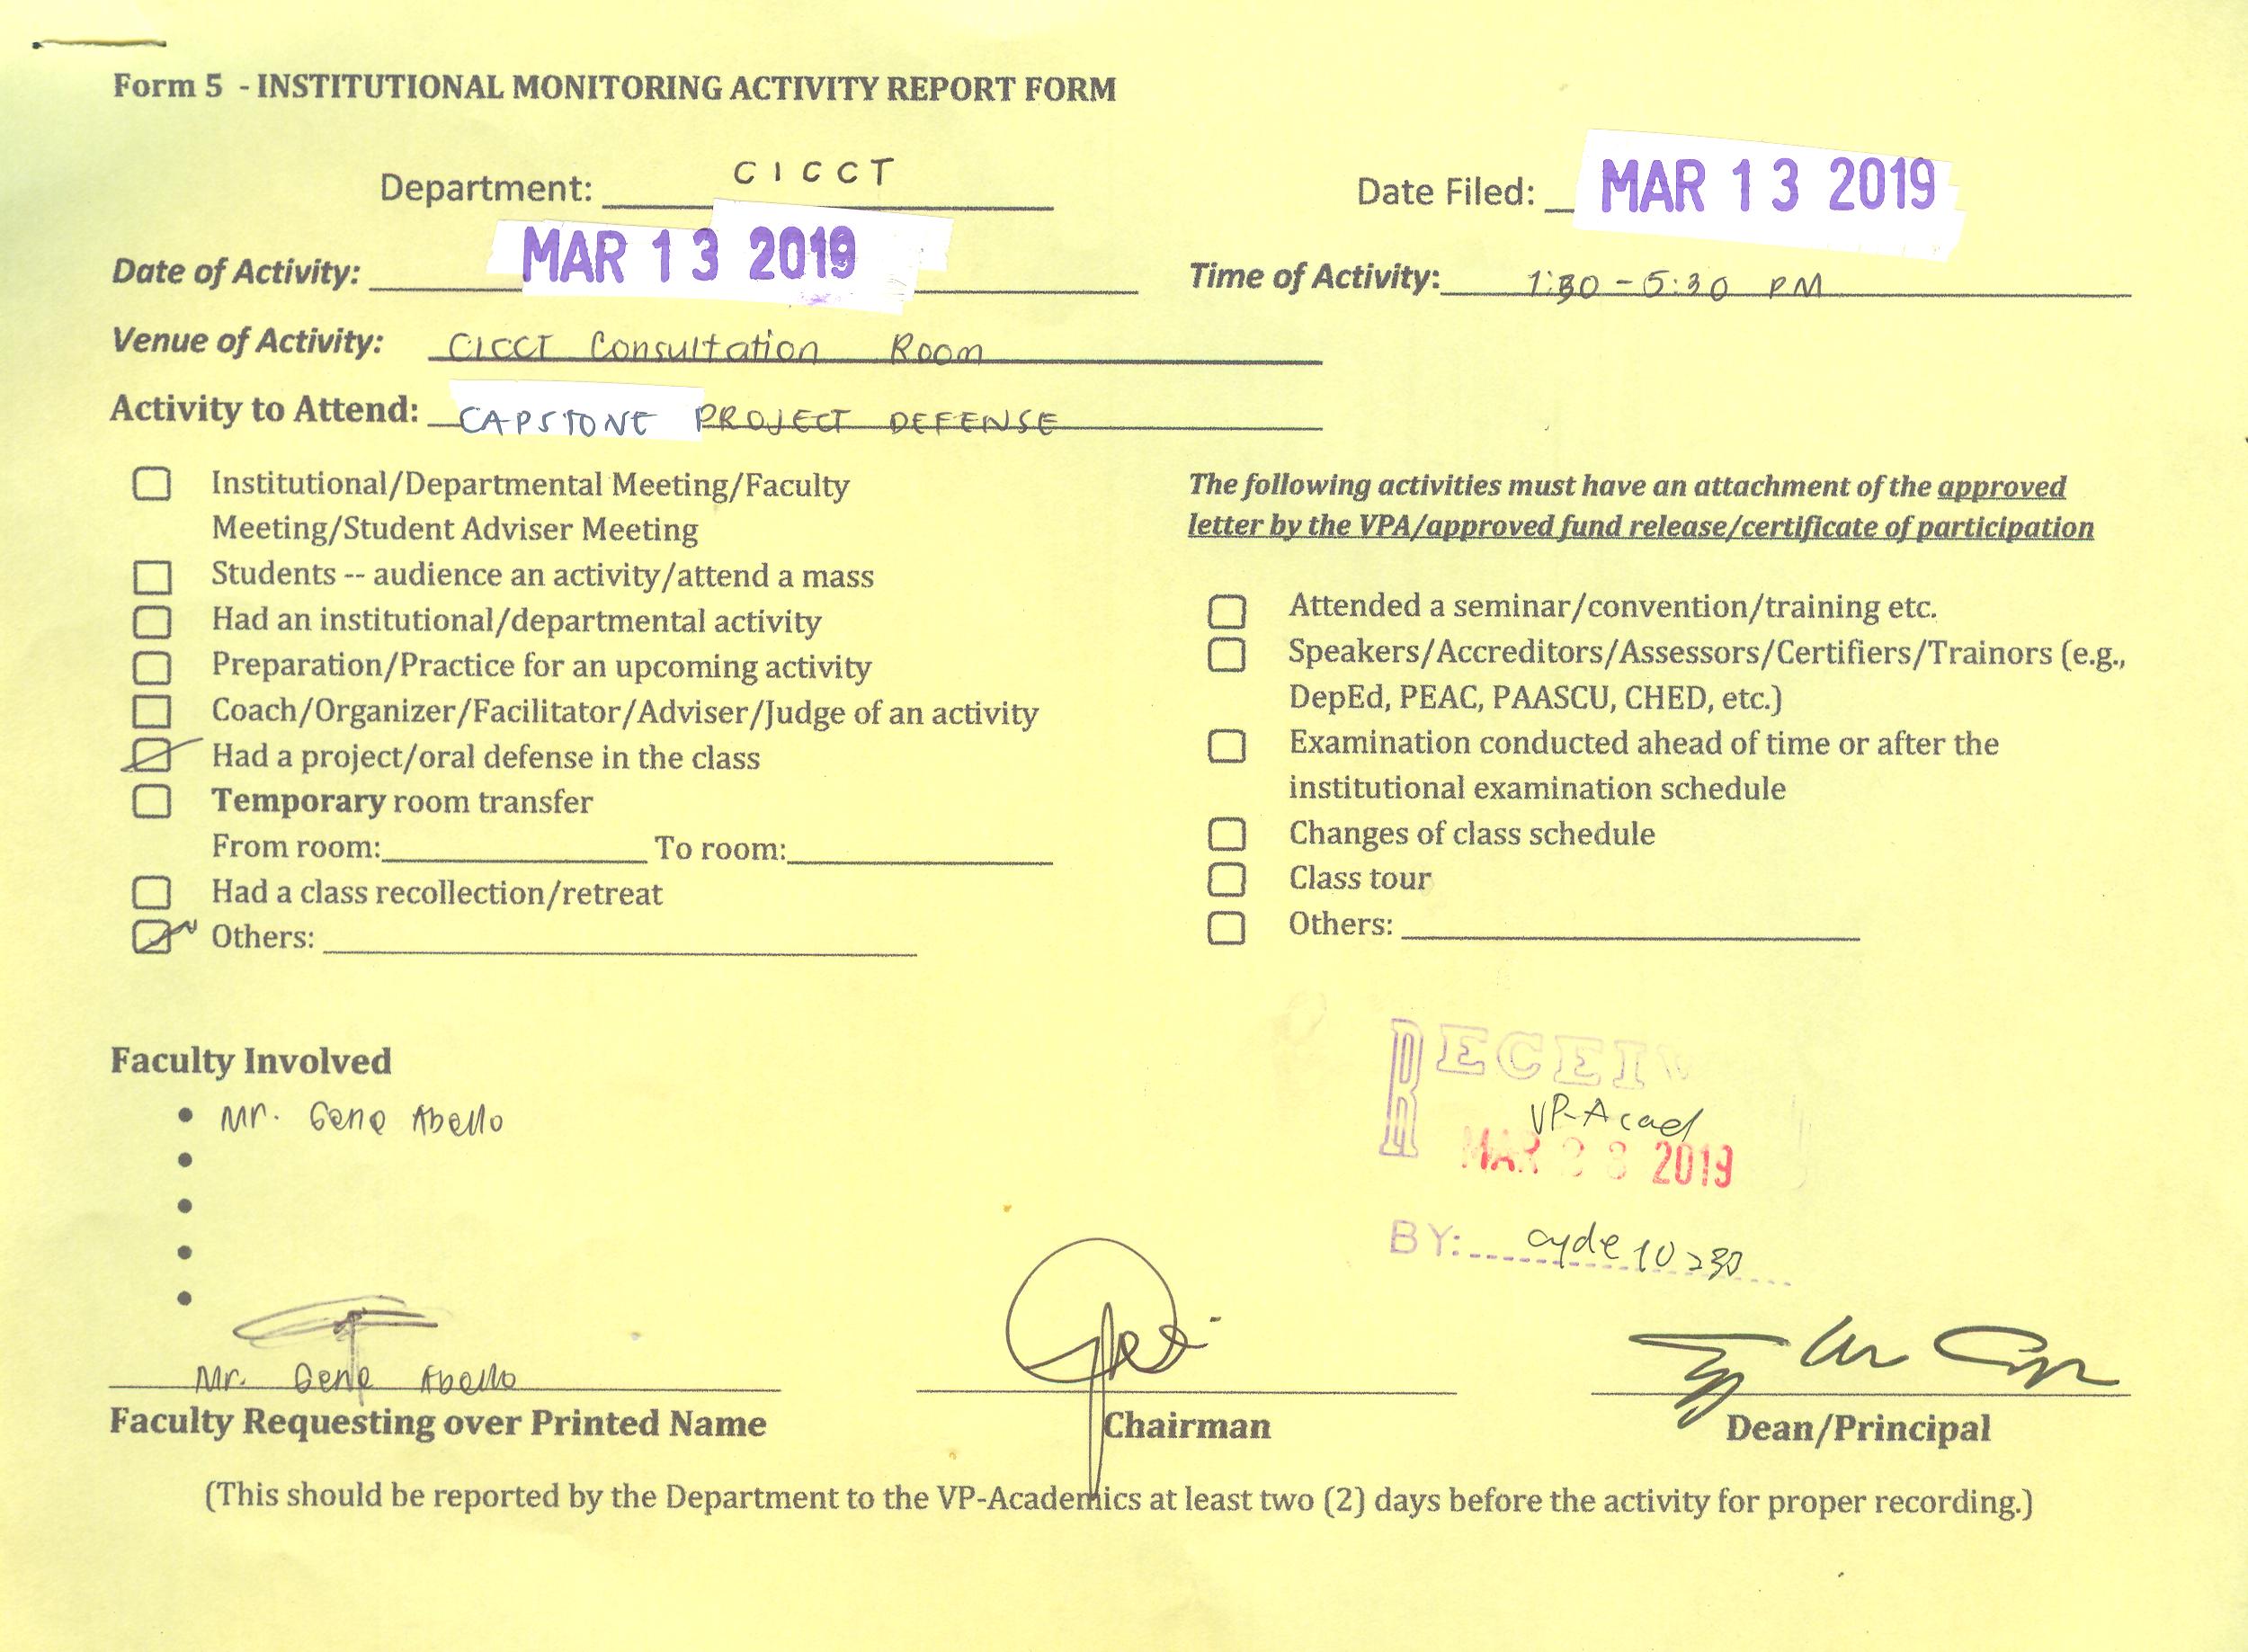 Form 5 - INSTITUTIONAL MONITORING ACTIVITY REPORT FORM
Department: CICCT
Date Filed: MAR 13 2019
Date of Activity: MAR 13 2019
Time of Activity: 1:30 - 5:30 PM
Venue of Activity: CICCT Consultation Room
Activity to Attend: CAPSTONE PROJECT DEFENSE
Institutional/Departmental Meeting/Faculty
Meeting/Student Adviser Meeting
Students -- audience an activity/attend a mass
Had an institutional/departmental activity
Preparation/Practice for an upcoming activity
Coach/Organizer/Facilitator/Adviser/Judge of an activity
Had a project/oral defense in the class
Temporary room transfer
From room: To room:
Had a class recollection/retreat
Others:
The following activities must have an attachment of the approved
letter by the VPA/approved fund release/certificate of participation
Attended a seminar/convention/training etc.
Speakers/Accreditors/Assessors/Certifiers/Trainors (e.g.,
DepEd, PEAC, PAASCU, CHED, etc.)
Examination conducted ahead of time or after the
institutional examination schedule
Changes of class schedule
Class tour
Others:
Faculty Involved
Mr. Gene Abello
RECEIV
VP-Acad
MAR 2019
BY:
Mr. Gene Abello
Faculty Requesting over Printed Name
Chairman
Dean/Principal
(This should be reported by the Department to the VP-Academics at least two (2) days before the activity for proper recording.)